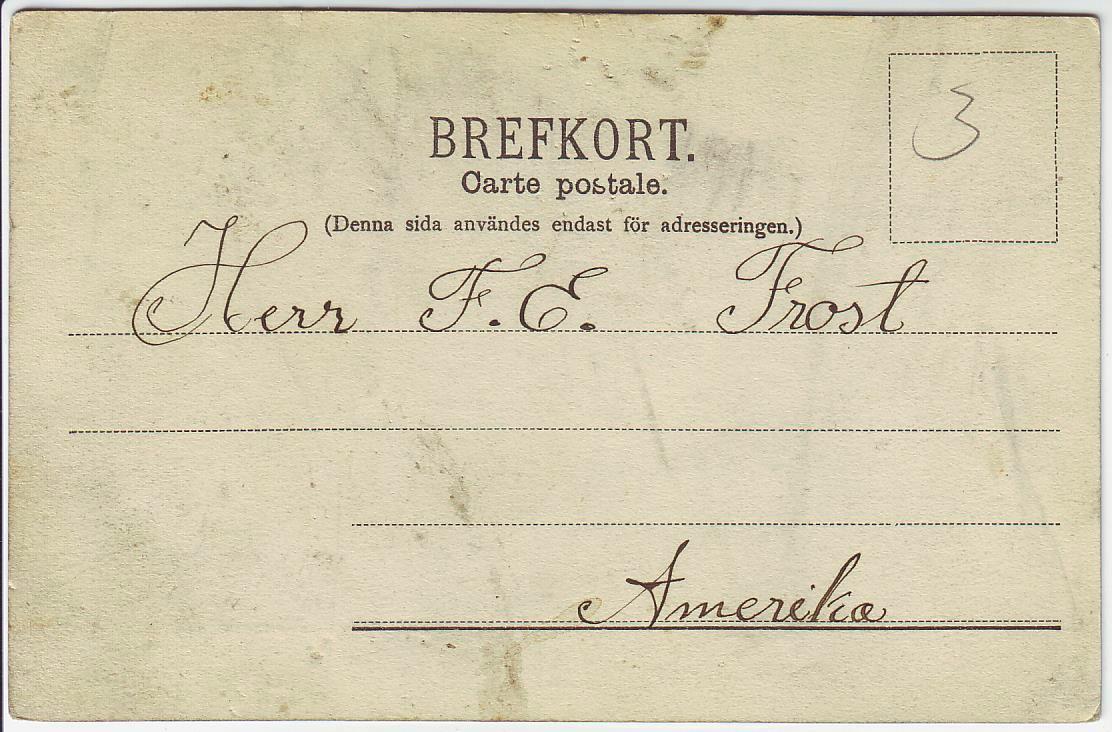 3
BREFKORT.
Carte postale.
(Denna sida användes endast för adresseringen.)
Herr F. E. Frost
Amerika